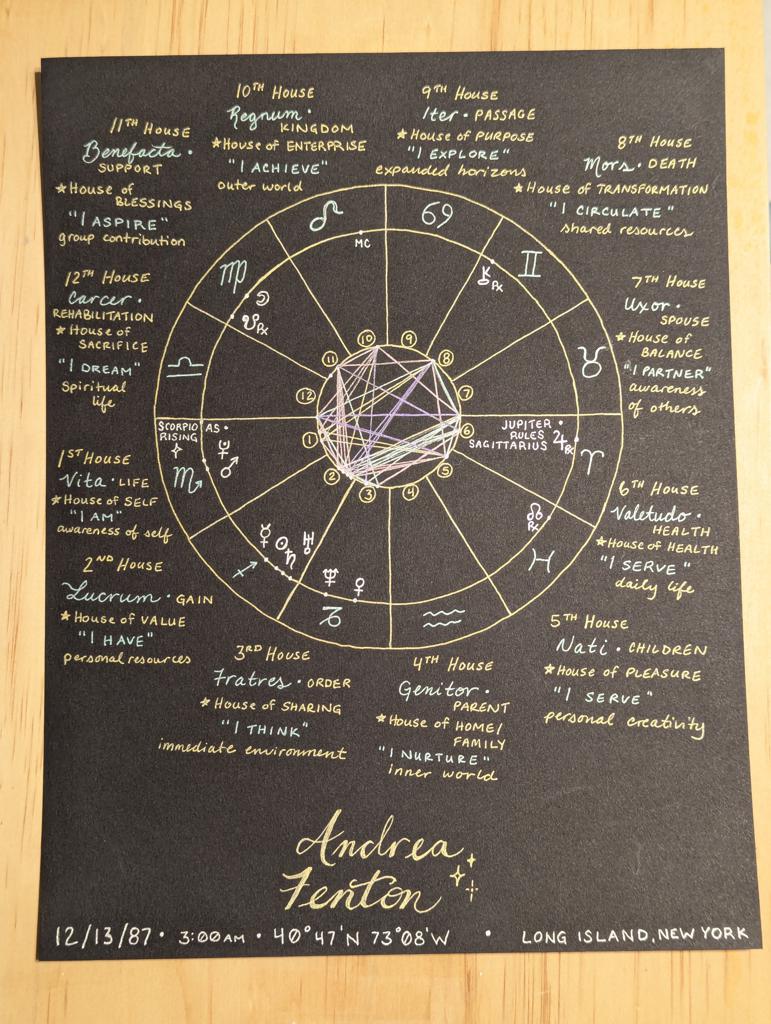 10TH HOUSE
Regnum •
KINGDOM
★House of ENTERPRISE
"I ACHIEVE"
outer world
9TH HOUSE
Iter • PASSAGE
★House of PURPOSE
"I EXPLORE"
expanded horizons
8TH HOUSE
Mors • DEATH
★House of TRANSFORMATION
"I CIRCULATE"
shared resources
11TH HOUSE
Benefacta •
SUPPORT
★House of
BLESSINGS
"I ASPIRE"
group contribution
12TH HOUSE
Carcer •
REHABILITATION
★House of
SACRIFICE
"I DREAM"
Spiritual
life
7TH HOUSE
Uxor •
SPOUSE
★House of
BALANCE
"I PARTNER"
awareness
of others
♌ ♋
♍ ♊
♎ ♉
MC
⚷ ℞
☽
☋ ℞
10 9
11 8
12 7
1 6
2 5
3 4
SCORPIO
RISING
AS •
♏
♇
♂
JUPITER •
RULES
SAGITTARIUS
♃ ℞
♈
☊ ℞
☿ ☉ ♄ ♅
♆ ♀
♐ ♓
♑ ♒
1ST HOUSE
Vita • LIFE
★House of SELF
"I AM"
awareness of self
6TH HOUSE
Valetudo •
HEALTH
★House of HEALTH
"I SERVE"
daily life
2ND HOUSE
Lucrum • GAIN
★House of VALUE
"I HAVE"
personal resources
3RD HOUSE
Fratres • ORDER
★House of SHARING
"I THINK"
immediate environment
4TH HOUSE
Genitor •
PARENT
★House of HOME/
FAMILY
"I NURTURE"
inner world
5TH HOUSE
Nati • CHILDREN
★House of PLEASURE
"I SERVE"
personal creativity
Andrea
Fenton
12/13/87 • 3:00AM • 40°47'N 73°08'W • LONG ISLAND, NEW YORK